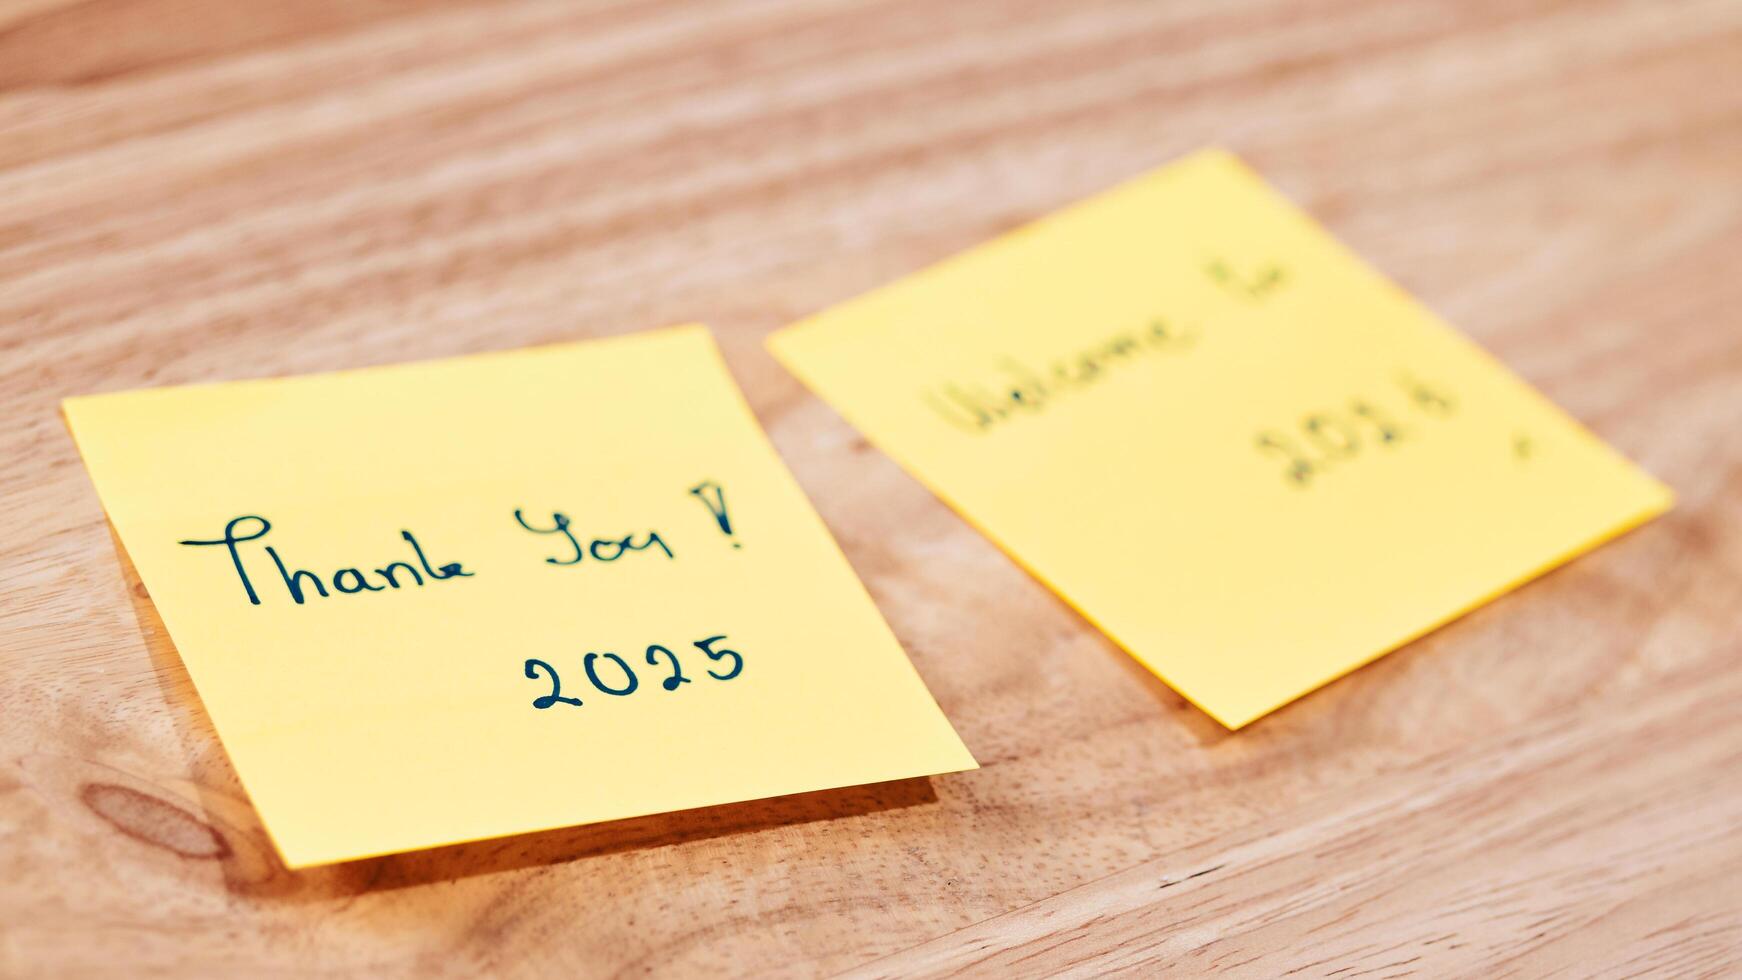 Thank You!
2025
Welcome to
2026